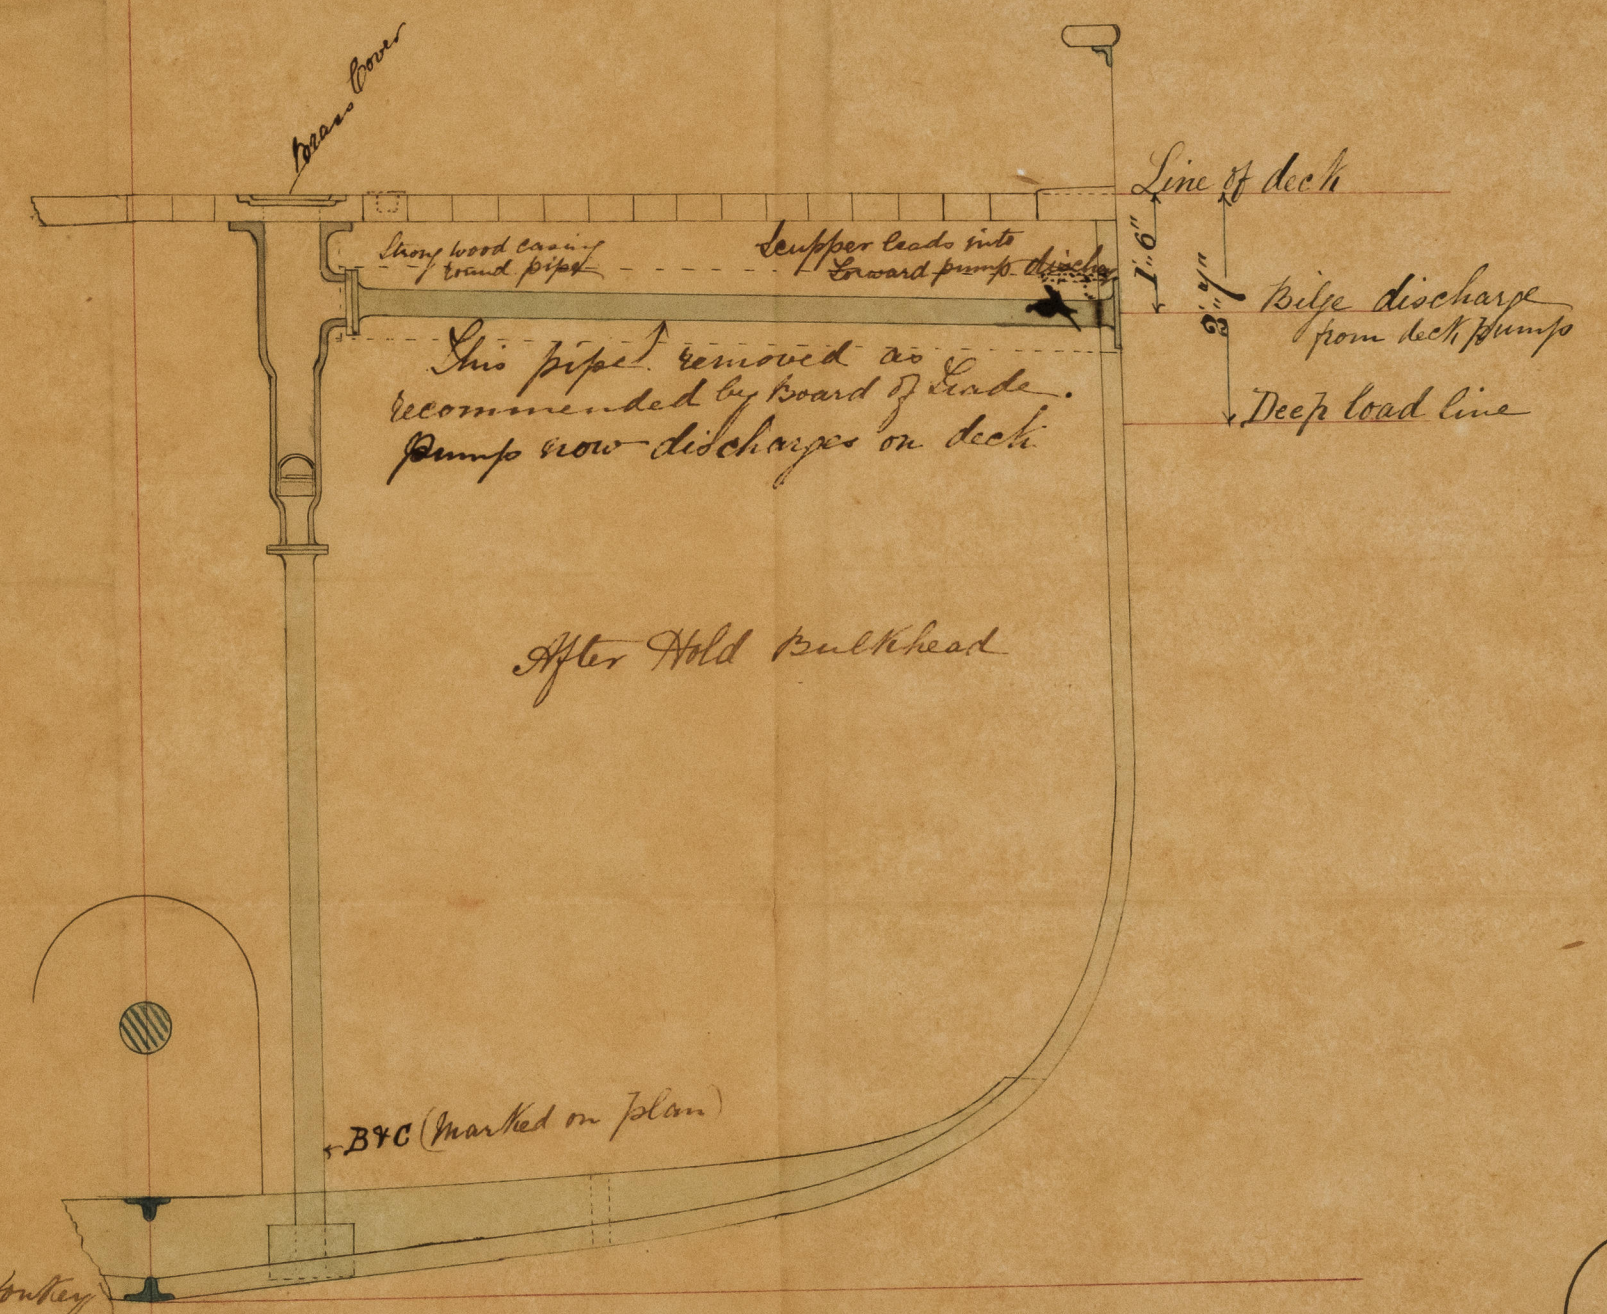 Brass Cover
Line of deck
Strong wood casing
round pipe
Scupper leads into
Forward pump discharge
1'.. 6"
Bilge discharge
from deck pump
This pipe removed as
recommended by Board of Trade.
pump now discharges on deck
Deep load line
After Hold Bulkhead
B & C (Marked on plan)